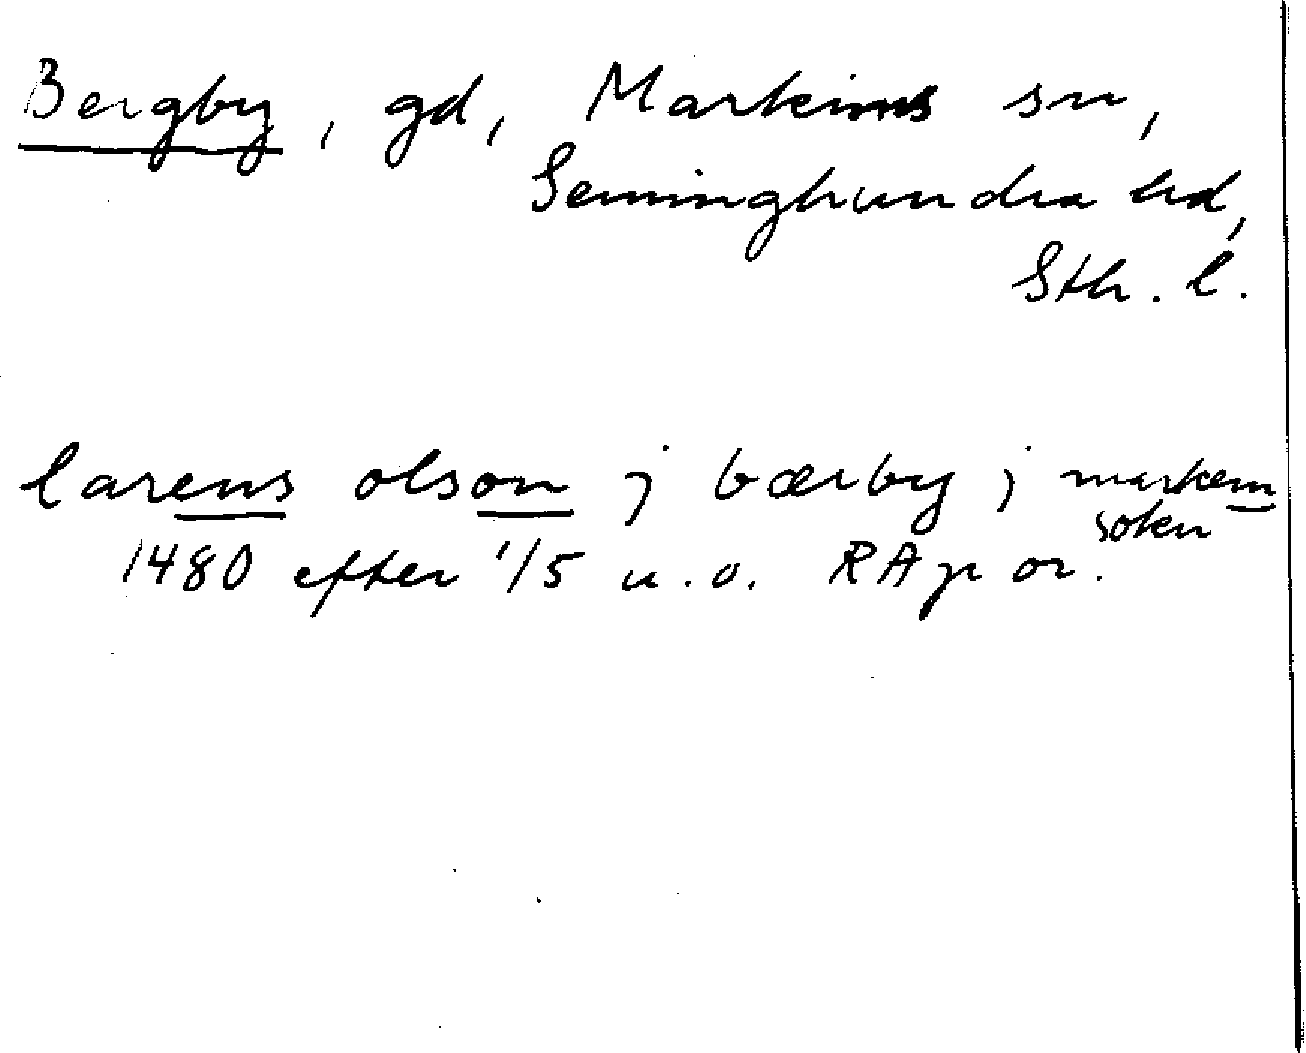 Bergby, gd, Markims sn,
Seminghundra hd,
Sth. l.
larens olson j bærby j markem
sokn
1480 efter 1/5 u.o. RAp or.